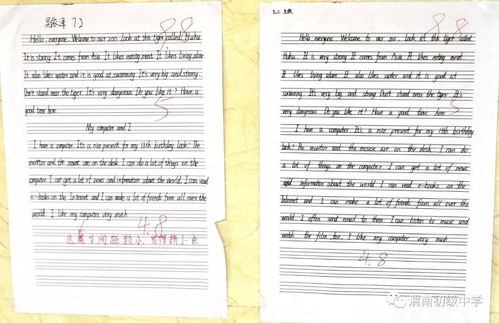 7.2
8.8
Hello, everyone. Welcome to our zoo. Look at this tiger called Huhu.
It is strong. It comes from Asia. It likes eating meat. It likes living alone.
It also likes water and it is good at swimming. It's very big and strong.
Don't stand near the tiger. It's very dangerous. Do you like it? Have a
good time here.
5
My computer and I
I have a computer. It's a nice present for my 13th birthday. Look! The
monitor and the mouse are on the desk. I can do a lot of things on the
computer. I can get a lot of news and information about the world. I can read
e-books on the Internet and I can make a lot of friends from all over the
world. I like my computer very much.
4.8
8.8
Hello, everyone. Welcome to our zoo. Look at this tiger called
Huhu. It is very strong. It comes from Asia. It likes eating meat.
It likes living alone. It also likes water and it is good at
swimming. It's very big and strong. Don't stand near the tiger. It's
very dangerous. Do you like it? Have a good time here.
5
I have a computer. It's a nice present for my 13th birthday.
Look! the monitor and the mouse are on the desk. I can do
a lot of things on the computer. I can get a lot of news
and information about the world. I can read e-books on the
Internet and I can make a lot of friends from all over the
world. I often send email to them. I can listen to music and
watch the film, too. I like my computer very much.
4.8
渭南初级中学